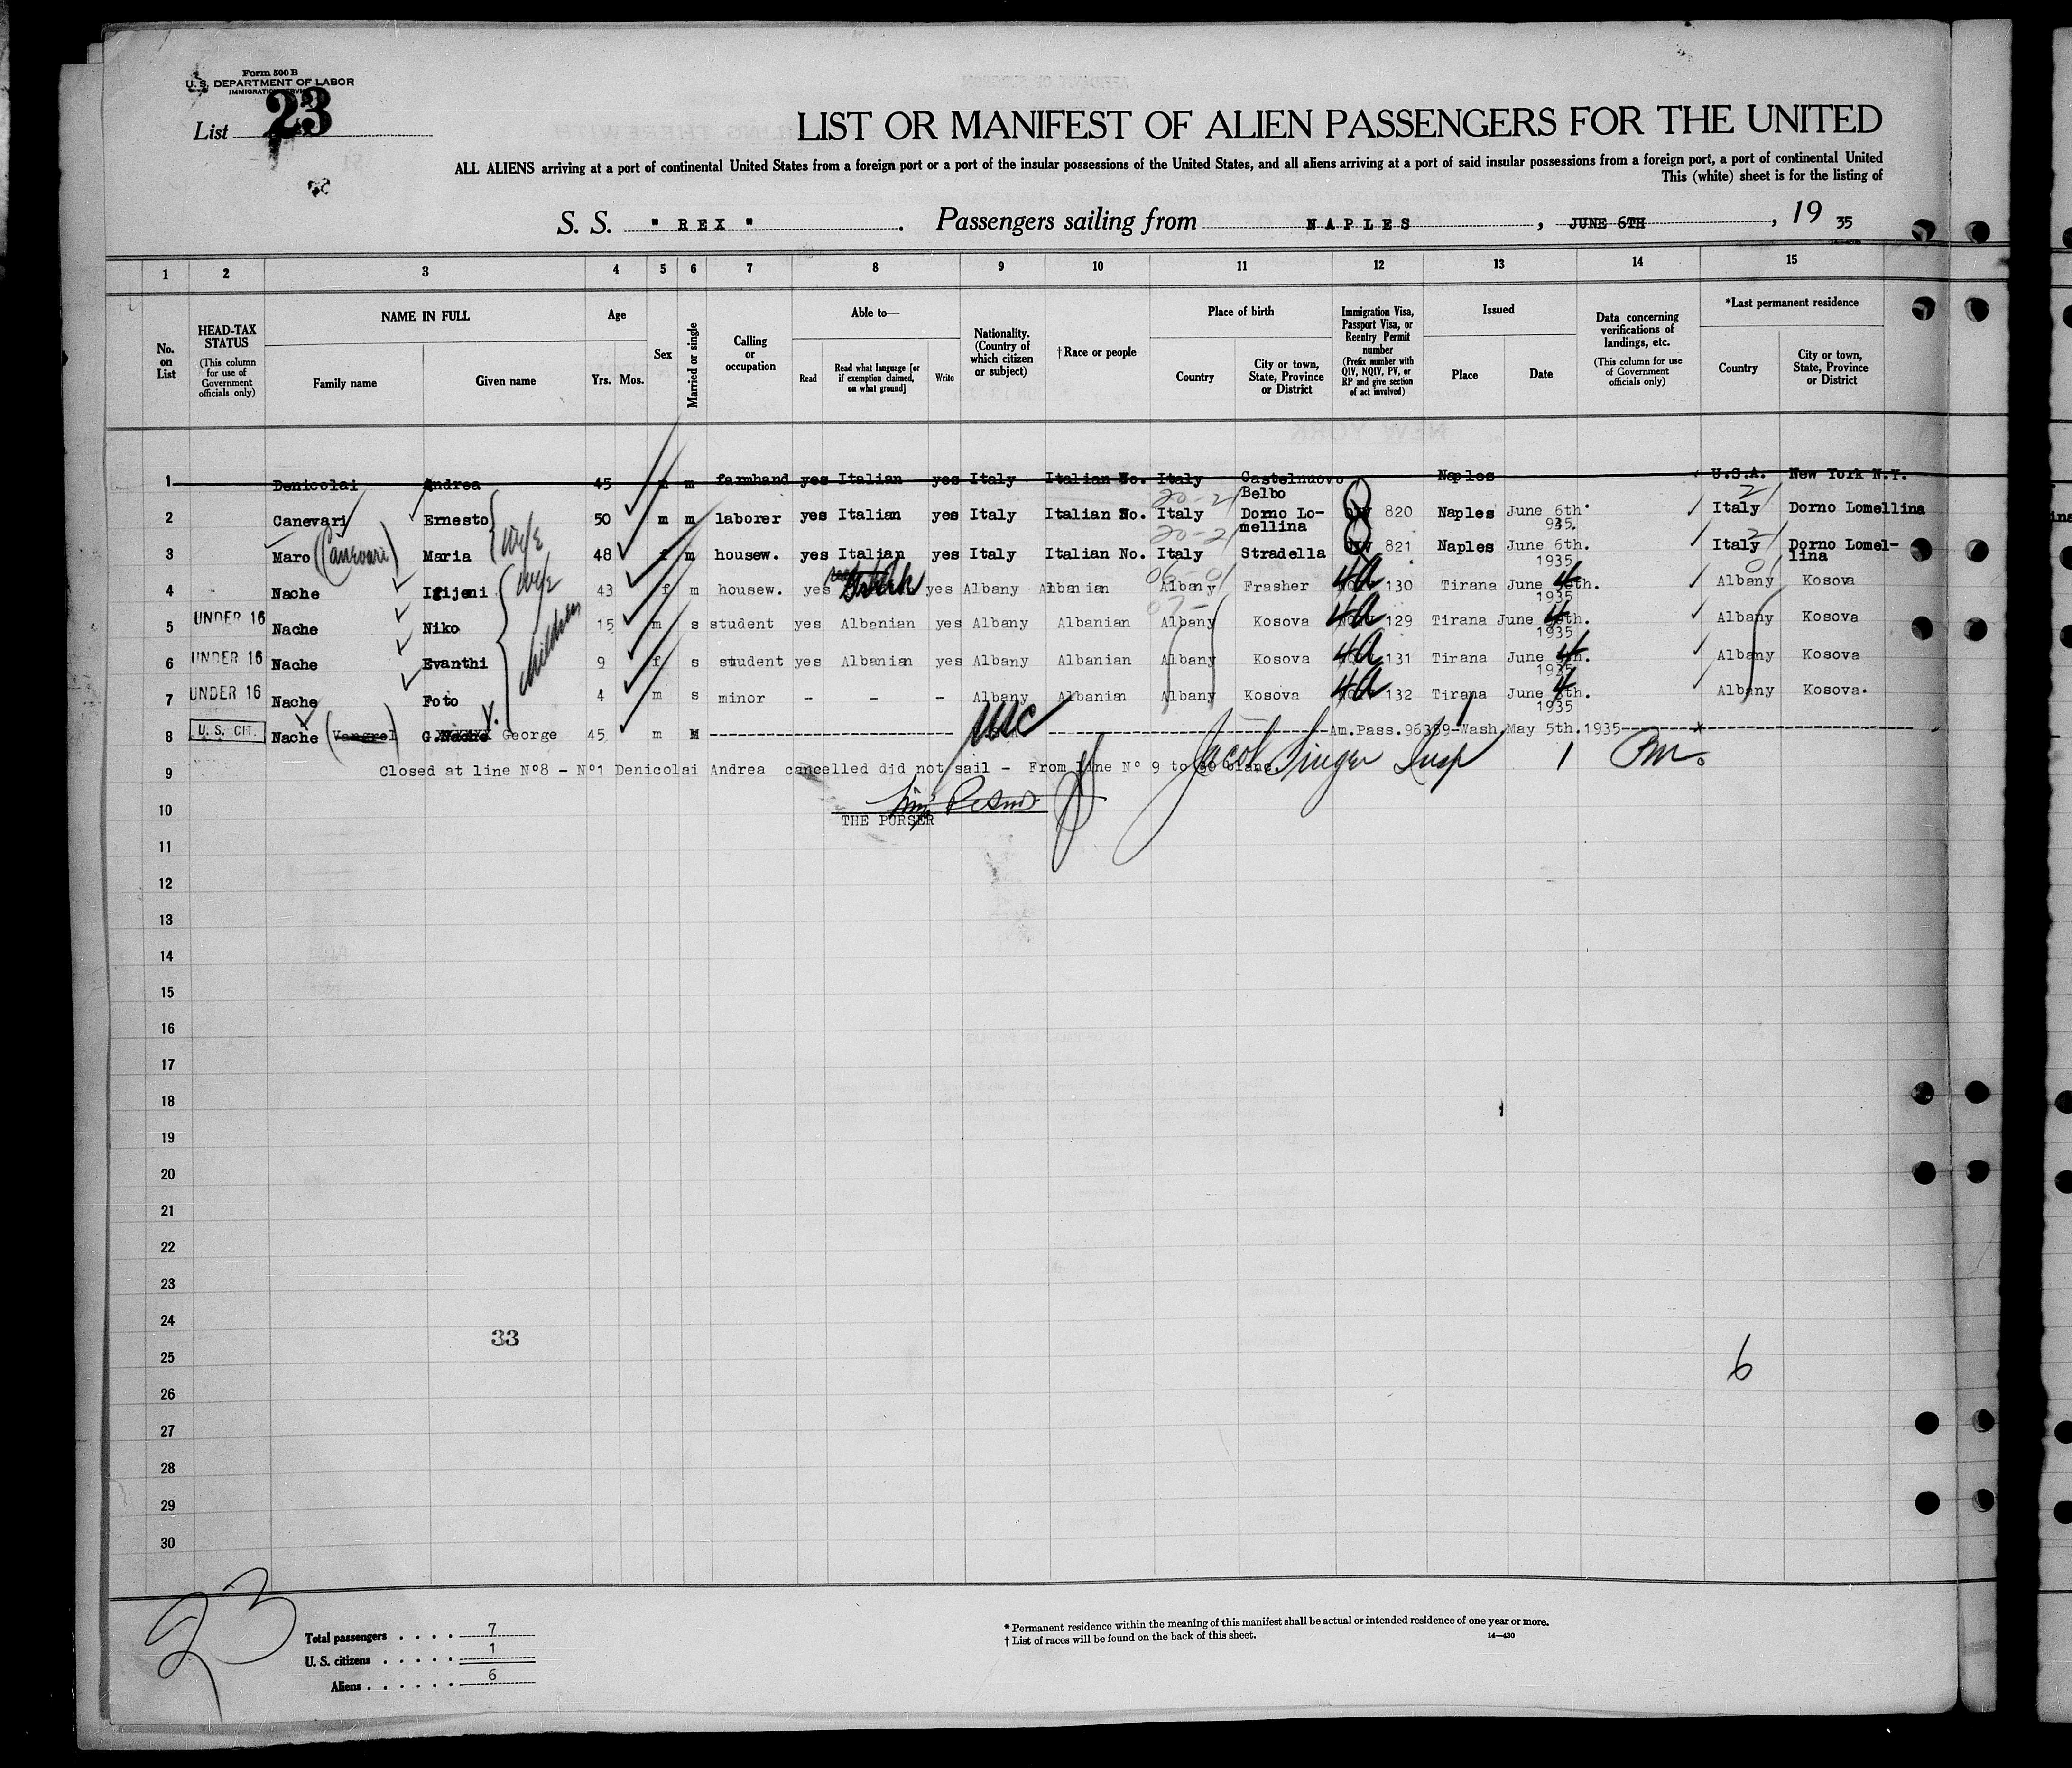 Form 500 B
U. S. DEPARTMENT OF LABOR
IMMIGRATION SERVICE
List 23
LIST OR MANIFEST OF ALIEN PASSENGERS FOR THE UNITED
ALL ALIENS arriving at a port of continental United States from a foreign port or a port of the insular possessions of the United States, and all aliens arriving at a port of said insular possessions from a foreign port, a port of continental United
This (white) sheet is for the listing of
S. S. " REX " . Passengers sailing from NAPLES , JUNE 6TH , 19 35
1 2 3 4 5 6 7 8 9 10 11 12 13 14 15
No. on List
HEAD-TAX STATUS (This column for use of Government officials only)
NAME IN FULL
Family name Given name
Age
Yrs. Mos.
Sex
Married or single
Calling or occupation
Able to—
Read Read what language [or if exemption claimed, on what ground] Write
Nationality. (Country of which citizen or subject)
†Race or people
Place of birth
Country City or town, State, Province or District
Immigration Visa, Passport Visa, or Reentry Permit number (Prefix number with QIV, NQIV, PV, or RP and give section of act involved)
Issued
Place Date
Data concerning verifications of landings, etc. (This column for use of Government officials only)
*Last permanent residence
Country City or town, State, Province or District
1 Denicolai Andrea 45 m m farmhand yes Italian yes Italy Italian No. Italy Castelnuovo Belbo Naples U.S.A. New York N.Y.
2 Canevari Ernesto 50 m m laborer yes Italian yes Italy Italian No. Italy 20-21 Dorno Lo-mellina QIV 820 Naples June 6th. 935. Italy 21 Dorno Lomellina
3 Maro (Canevari) Maria wife 48 f m housew. yes Italian yes Italy Italian No. Italy 20-21 Stradella QIV 821 Naples June 6th. 1935 Italy 21 Dorno Lomel-lina
4 Nache Igijeni wife 43 f m housew. yes yes Albany Albanian Albany Frasher 4a 130 Tirana June 4th. 1935 Albany 01 Kosova
UNDER 16 5 Nache Niko 15 m s student yes Albanian yes Albany Albanian Albany Kosova 4a 129 Tirana June 4th. 1935 Albany Kosova
UNDER 16 6 Nache Evanthi children 9 f s student yes Albanian yes Albany Albanian Albany Kosova 4a 131 Tirana June 4th. 1935 Albany Kosova
UNDER 16 7 Nache Foto 4 m s minor - - - Albany Albanian Albany Kosova 4a 132 Tirana June 4th. 1935 Albany Kosova.
U. S. CIT. 8 Nache (Vangrel) G. Nache George 45 m M USC Am.Pass.96359-Wash May 5th.1935
9 Closed at line Nº8 - Nº1 Denicolai Andrea cancelled did not sail - From line Nº 9 to 30 blanc.
Jacob Singer Insp 1
10
THE PURSER
11
12
13
14
15
16
17
18
19
20
21
22
23
24
33
25
6
26
27
28
29
30
23
Total passengers . . . . 7
U. S. citizens . . . . . 1
Aliens . . . . . . 6
* Permanent residence within the meaning of this manifest shall be actual or intended residence of one year or more.
† List of races will be found on the back of this sheet.
14—430